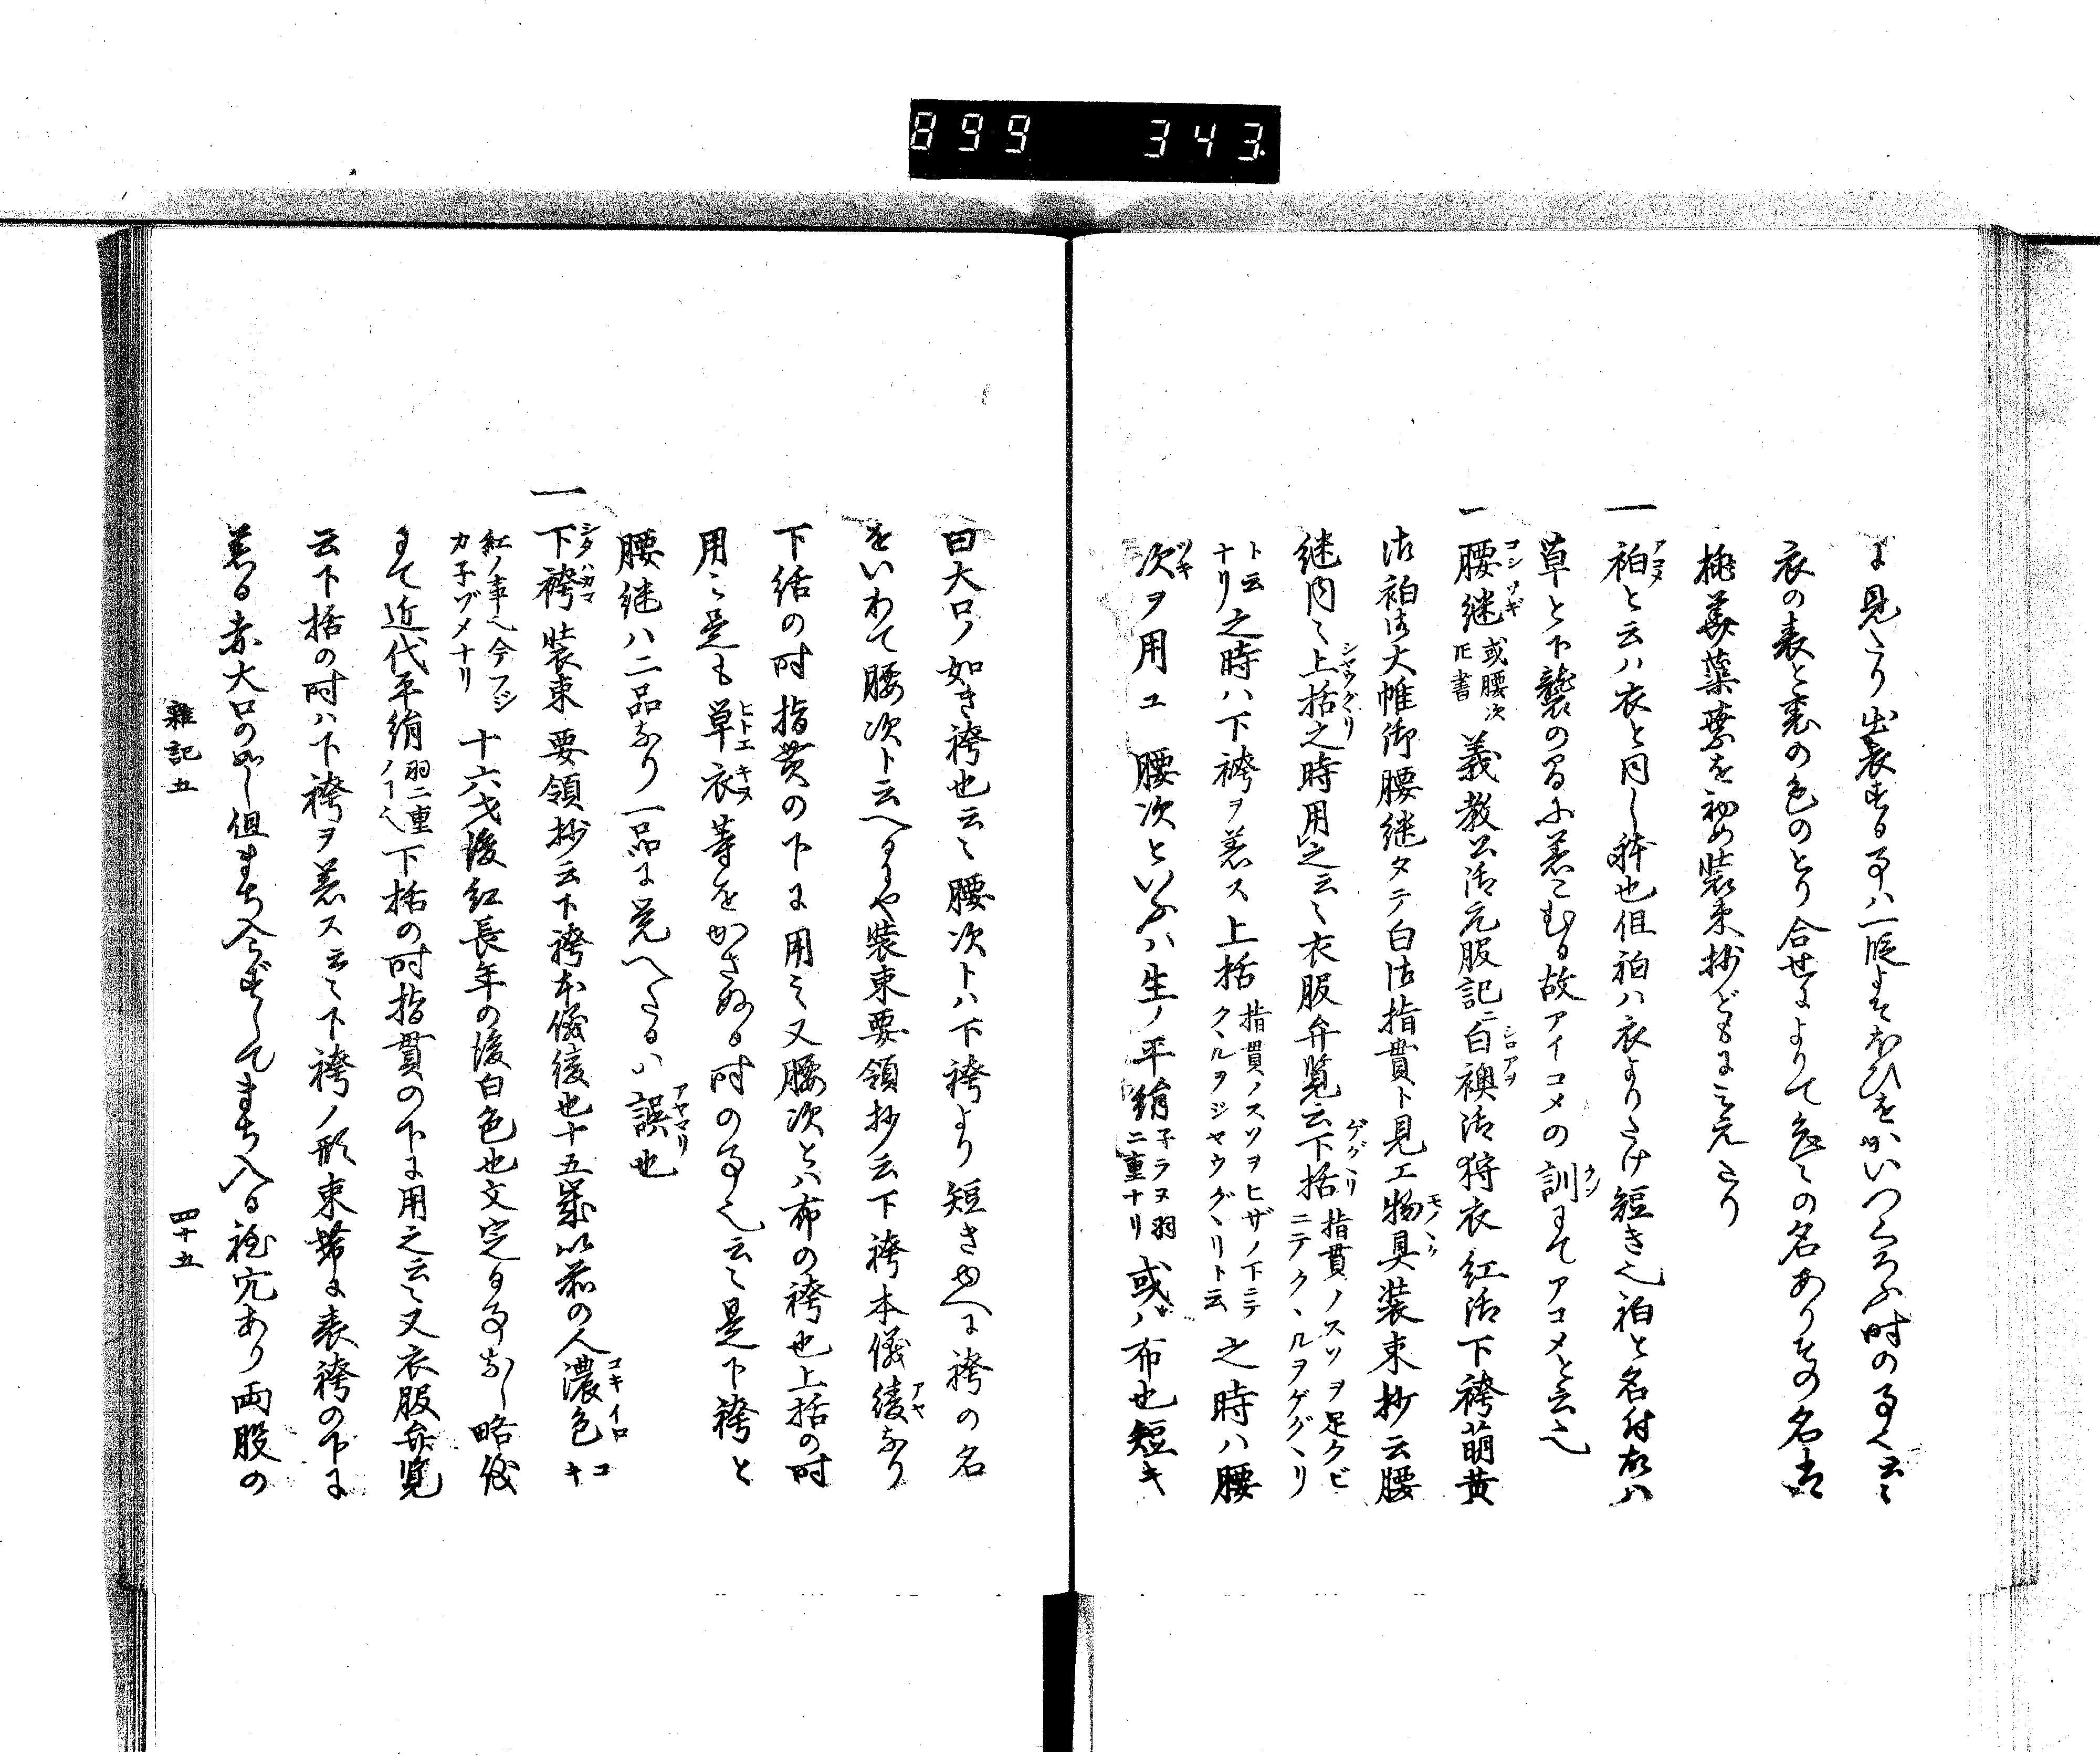 899 343.
に見えたり出衣する事ハ一段よそほひをかいつくろふ時の事也云々
衣の表と裏の色のとり合せによりて色々の名ありその名共
桃華蘂葉を初め装束抄どもに見えたり
一 衵アコメと云ハ衣と同し躰也但衵ハ衣よりたけ短き也衵と名付故ハ
草と下襲の間に着こむる故アイコメの訓クンにてアコメと云也
一 腰継コシツギ或腰次㐂書 義教公御元服記ニ白襖シロアヲ御狩衣紅御下袴萌黄
御衵御大帷御腰継タテ白御指貫ト見エ物具モノヽク装束抄云腰
継内々上括シヤウグヽリ之時用之云々衣服弁覧云下括ゲグヽリ指貫ノスソヲ足クビニテクヽルヲゲグヽリ
ト云ナリ之時ハ下袴ヲ着ス上括指貫ノスソヲヒザノ下ニテクヽルヲジヤウグヽリト云之時ハ腰
次ツギヲ用ユ 腰次といふハ生ノ平絹子ラヌ羽二重ナリ或ハ布也短キ
曰大口ノ如き袴也云々腰次トハ下袴より短きゆへに袴の名
をいわて腰次ト云へるにや装束要領抄云下袴本儀綾アヤなり
下括の時指貫の下に用之又腰次とハ布の袴也上括の時
用之是も草衣ヒトエキヌ等をかさぬる時の事也云々是下袴と
腰継ハ二品なり一品に覚へたるハ誤アヤマリ也
一 下袴シタハカマ装束要領抄云下袴本儀綾也十五歳以前の人濃色コキイロコキ
紅ノ事也今フジカ子ゾメナリ 十六才後紅長年の後白色也文定る事なし略儀
にて近代平絹羽二重ノ丁也下括の時指貫の下に用之云々又衣服弁覧
云下括の時ハ下袴ヲ着ス云々下袴ノ形束帯に表袴の下に
着る赤大口の如し但まち入らずしてまち入る穴あり両股の
雑記五 四十五